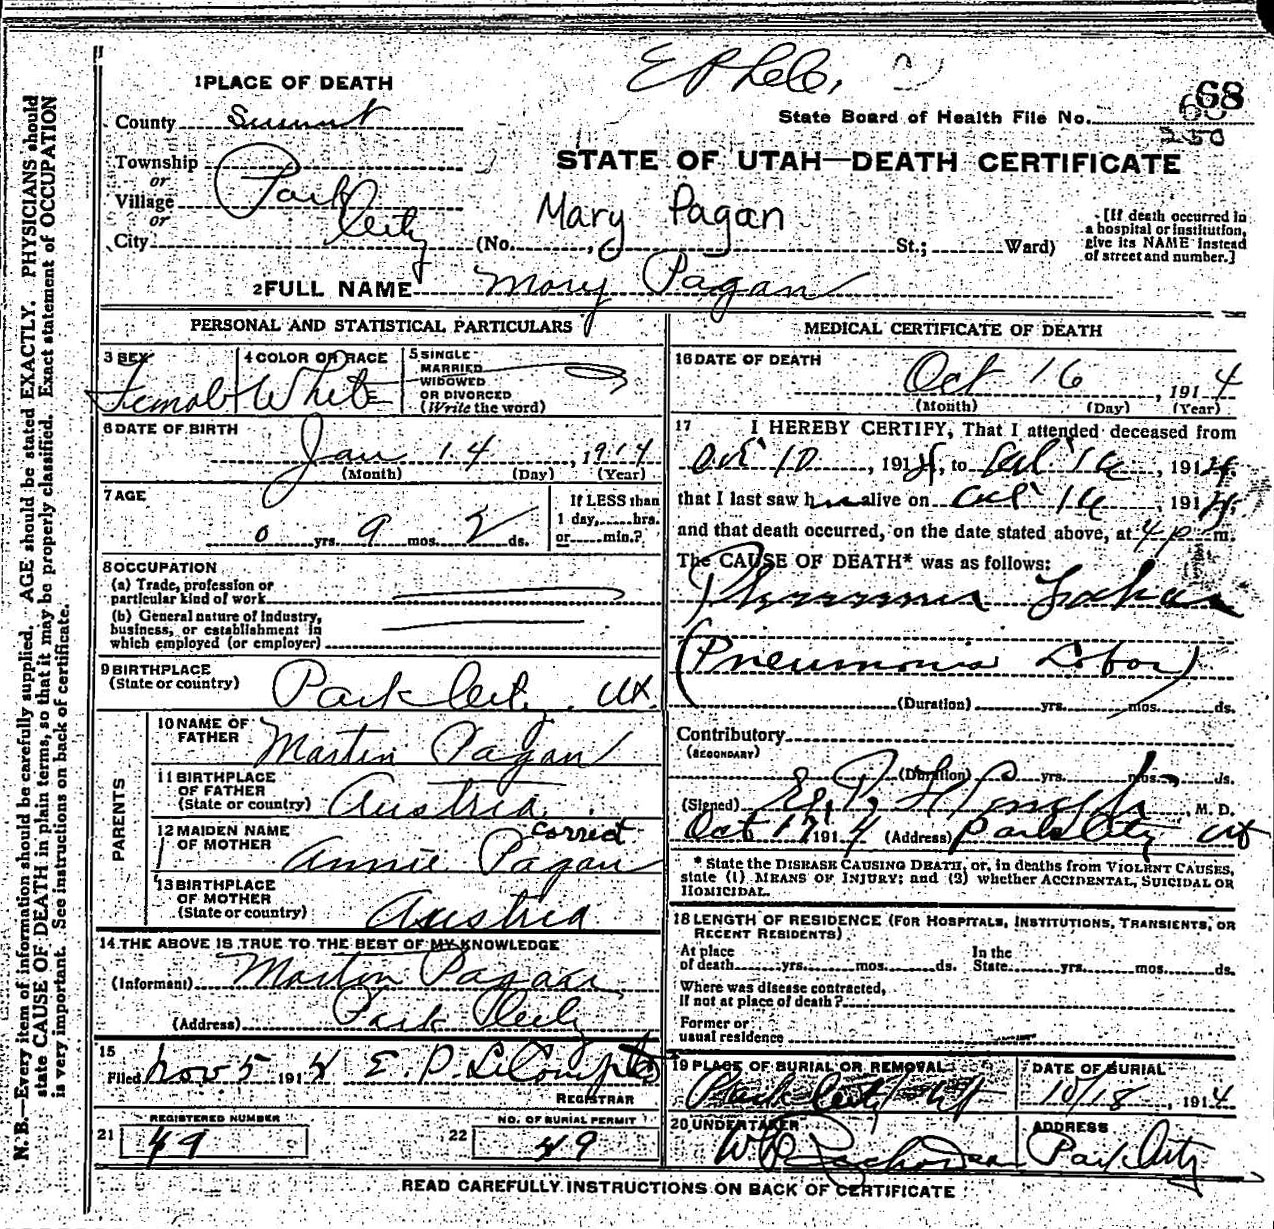 1 PLACE OF DEATH
County Summit
Township
or
Village Park
or
City City
State Board of Health File No. 68
250
STATE OF UTAH—DEATH CERTIFICATE
Mary Pagan
(No. St.; Ward)
[If death occurred in
a hospital or institution,
give its NAME instead
of street and number.]
2 FULL NAME Mary Pagan
PERSONAL AND STATISTICAL PARTICULARS
3 SEX
Female
4 COLOR OR RACE
White
5 SINGLE
MARRIED
WIDOWED
OR DIVORCED
(Write the word)
6 DATE OF BIRTH
Jan 14, 1914
(Month) (Day) (Year)
7 AGE
0 yrs. 9 mos. 2 ds.
If LESS than
1 day, hrs.
or min.?
8 OCCUPATION
(a) Trade, profession or
particular kind of work
(b) General nature of industry,
business, or establishment in
which employed (or employer)
9 BIRTHPLACE
(State or country) Park City, Ut.
PARENTS
10 NAME OF
FATHER Martin Pagan
11 BIRTHPLACE
OF FATHER
(State or country) Austria
12 MAIDEN NAME
OF MOTHER
correct
Annie Pagan
13 BIRTHPLACE
OF MOTHER
(State or country) Austria
14 THE ABOVE IS TRUE TO THE BEST OF MY KNOWLEDGE
(Informant) Martin Pagan
(Address) Park City
15
Filed Nov 5 1914 E. P. LeCompte
REGISTRAR
REGISTERED NUMBER
21 49
NO. OF BURIAL PERMIT
22 49
MEDICAL CERTIFICATE OF DEATH
16 DATE OF DEATH
Oct 16, 1914
(Month) (Day) (Year)
17 I HEREBY CERTIFY, That I attended deceased from
Oct 10, 1914, to Oct 16, 1914
that I last saw h alive on Oct 16, 1914,
and that death occurred, on the date stated above, at 4 p m.
The CAUSE OF DEATH* was as follows:
(Pneumonia Lobar)
(Duration) yrs. mos. ds.
Contributory
(SECONDARY)
(Duration) yrs. mos. ds.
(Signed) M. D.
Oct 17 1914 (Address) Park City Ut
* State the DISEASE CAUSING DEATH, or, in deaths from VIOLENT CAUSES,
state (1) MEANS OF INJURY; and (2) whether ACCIDENTAL, SUICIDAL OR
HOMICIDAL.
18 LENGTH OF RESIDENCE (FOR HOSPITALS, INSTITUTIONS, TRANSIENTS, OR
RECENT RESIDENTS)
At place
of death yrs. mos. ds.
In the
State yrs. mos. ds.
Where was disease contracted,
if not at place of death?
Former or
usual residence
19 PLACE OF BURIAL OR REMOVAL
Park City Ut
DATE OF BURIAL
10/18, 1914
20 UNDERTAKER
ADDRESS
Park City
READ CAREFULLY INSTRUCTIONS ON BACK OF CERTIFICATE
N. B.—Every item of information should be carefully supplied. AGE should be stated EXACTLY. PHYSICIANS should
state CAUSE OF DEATH in plain terms, so that it may be properly classified. Exact statement of OCCUPATION
is very important. See instructions on back of certificate.